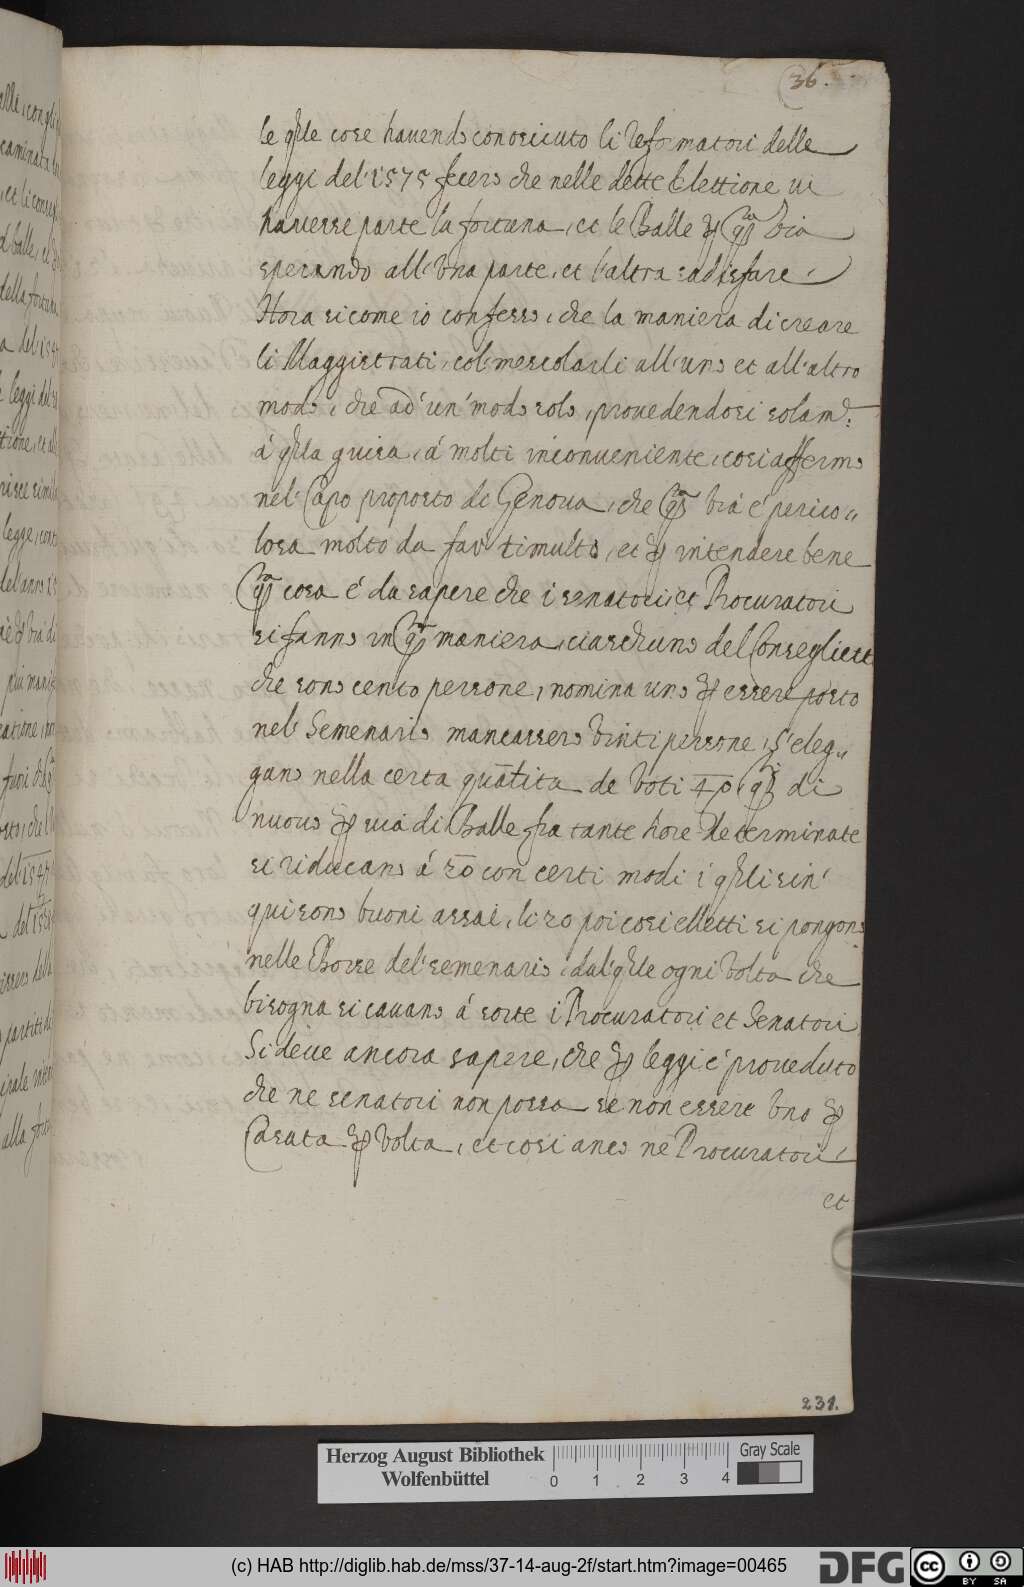 36.
le qlle cose hauendo conosciuto li Reformatori delle
leggi del 1575 fecero che nelle dette Elettione ui
hauesse parte la fortuna, et le Balle p qsta via
sperando all'una parte, et l'altra sadisfare.
Hora sicome io confesso, che la maniera di creare
li Maggistrati, col mescolarli all'uno et all'altro
modo, che ad un' modo solo, prouedendosi solamte:
á qlla guisa, á molti inconueniente, cosi affermo
nel Capo proposto di Genoua, che qsta via é perico„
losa molto da far timulto, et p intendere bene
qsta cosa é da sapere che i senatori et Procuratori
si fanno in qsta maniera, ciaschuno del Consegliett
che sono cento persone, nomina uno p essere posto
nel Semenario mancassero vinti persone, s'eleg„
gano nella certa quātita de voti 40 qsti di
nuouo p uia di Balle fra tante hore determinate
si riducano á 20 con certi modi i qlli sin'
qui sono buoni assai, li 20 poi cosi elletti si pongono
nelle Borse del semenario, dal qlle ogni volta che
bisogna si cauano á sorte i Procuratori et Senatori
Si deue ancora sapere, che p leggi é proueduto
che ne senatori non possa se non essere uno p
Casata p volta, et cosi anco ne Procuratori,
et
231.
Herzog August Bibliothek
Wolfenbüttel
0 1 2 3 4
Gray Scale
(c) HAB http://diglib.hab.de/mss/37-14-aug-2f/start.htm?image=00465
DFG
cc BY SA